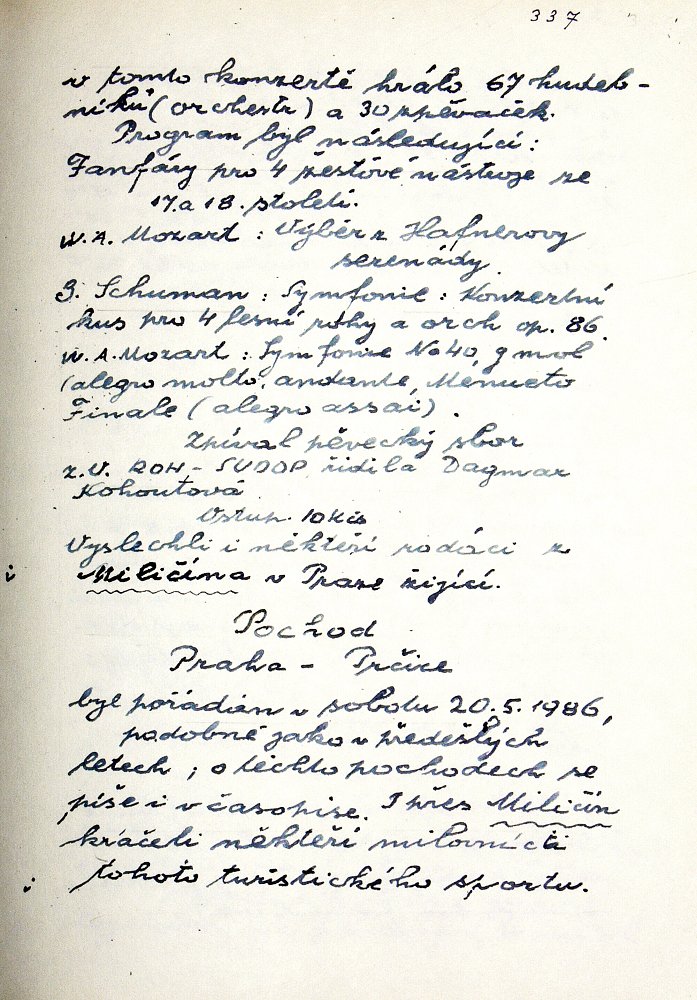 337
v tomto konzertě hrálo 67 hudeb-
níků (orchestr) a 30 zpěvaček.
Program byl následující:
Fanfáry pro 4 žesťové nástroje ze
17. a 18. století.
W. A. Mozart : Výběr z Hafnerovy
serenády.
Schuman : Symfonie : Konzertní
kus pro 4 lesní rohy a orch op. 86.
W. A. Mozart : Symfonie No 40, g mol
(alegro molto, andante, Menueto
Finale (alegro assai).
Zpíval pěvecký sbor
z. V. ROH - SUDOP řídila Dagmar
Kohoutová
Vstup. 10 Kčs
Vyslechli i někteří rodáci z
Miličína v Praze žijící.
Pochod
Praha - Prčice
byl pořádán v sobotu 20. 5. 1986,
podobně jako v předešlých
letech ; o těchto pochodech se
píše i v časopise. I přes Miličín
kráčeli někteří milovníci
tohoto turistického sportu.